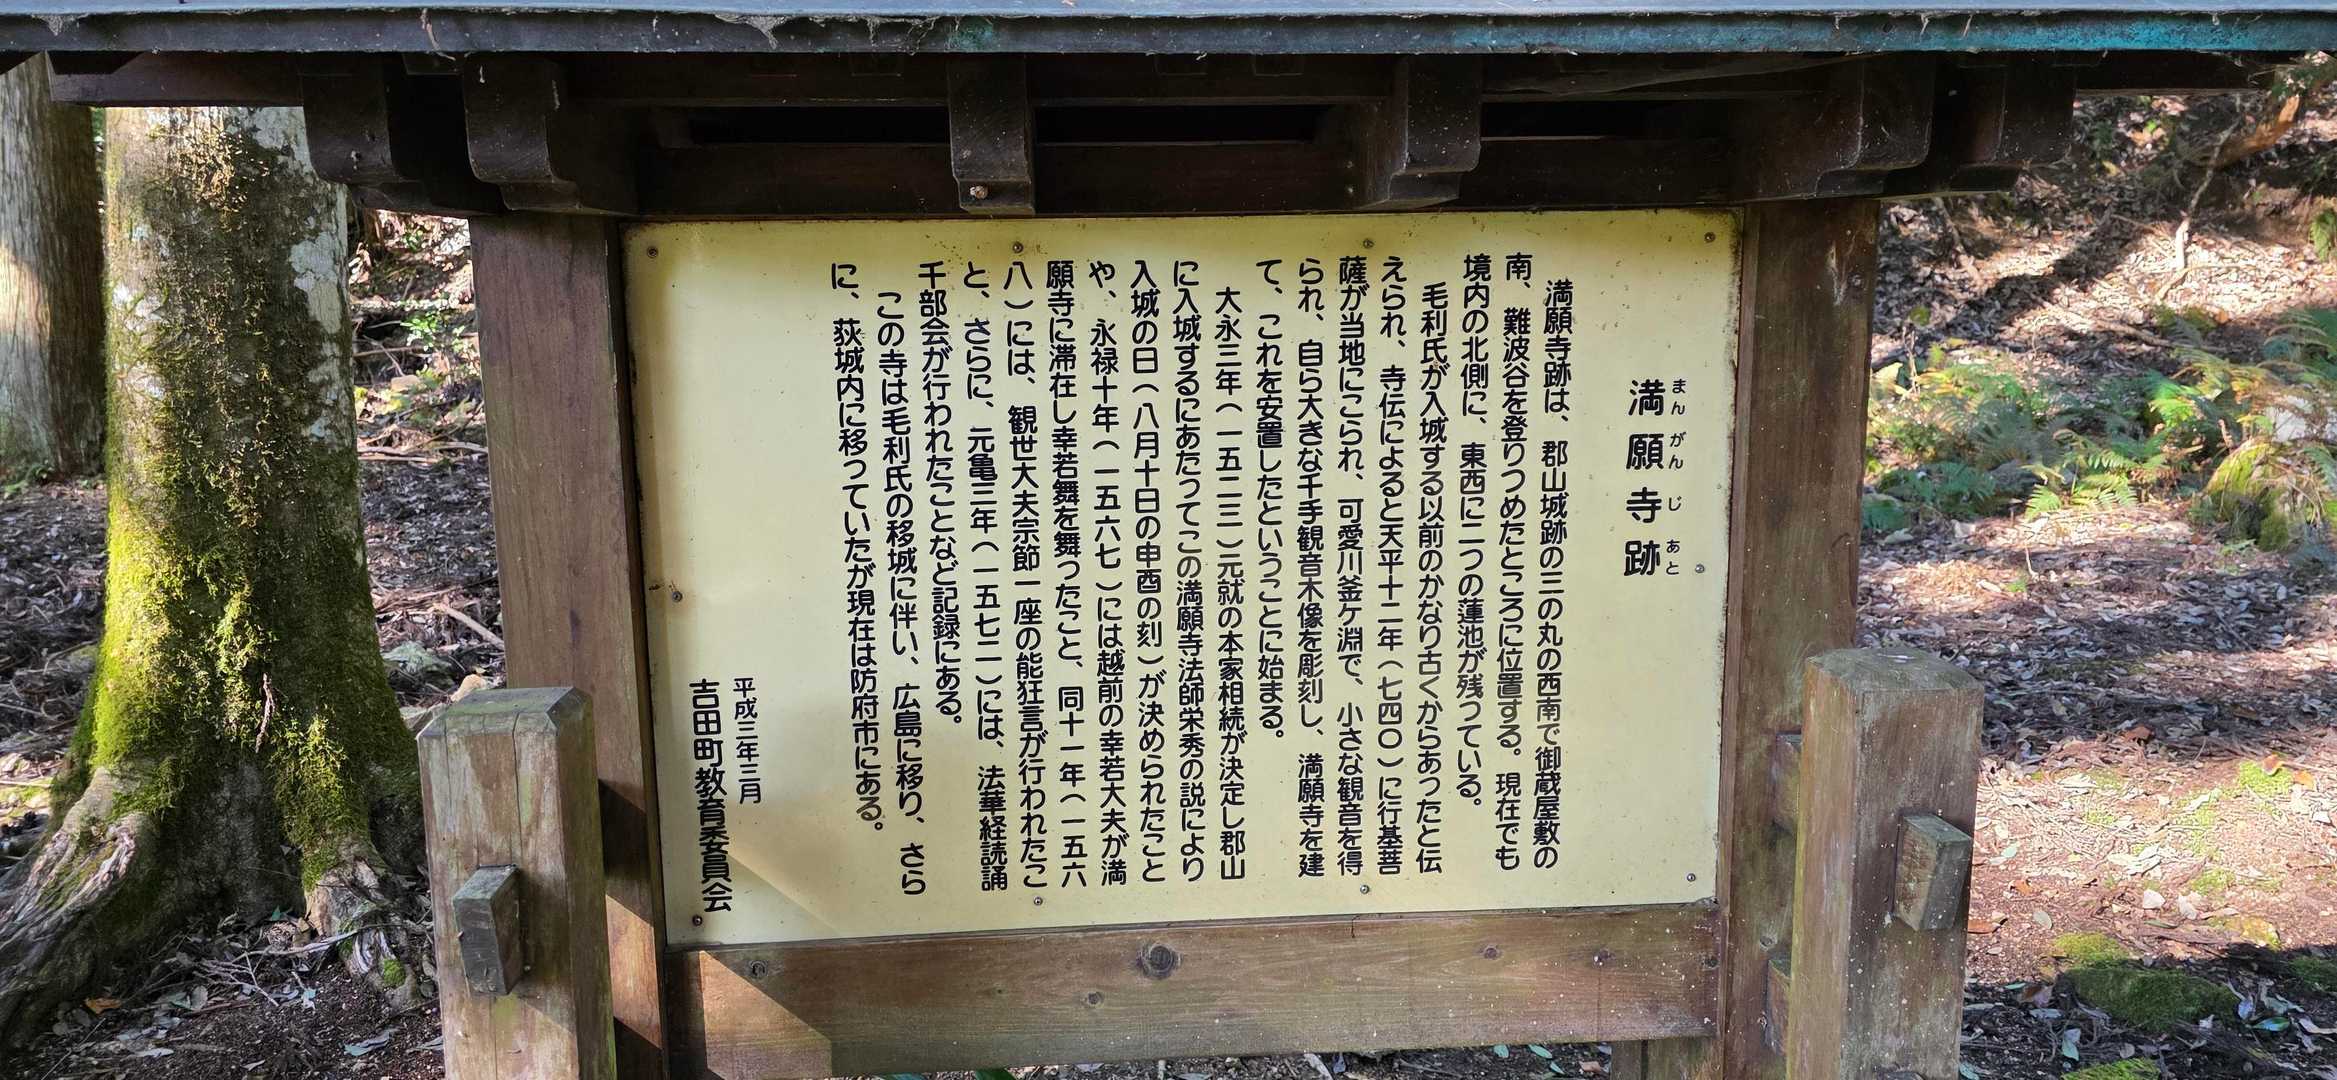 満願寺跡
まんがんじあと
満願寺跡は、郡山城跡の三の丸の西南で御蔵屋敷の
南、難波谷を登りつめたところに位置する。現在でも
境内の北側に、東西に二つの蓮池が残っている。
毛利氏が入城する以前のかなり古くからあったと伝
えられ、寺伝によると天平十二年(七四〇)に行基菩
薩が当地にこられ、可愛川釜ケ淵で、小さな観音を得
られ、自ら大きな千手観音木像を彫刻し、満願寺を建
て、これを安置したということに始まる。
大永三年(一五二三)元就の本家相続が決定し郡山
に入城するにあたってこの満願寺法師栄秀の説により
入城の日(八月十日の申酉の刻)が決められたこと
や、永禄十年(一五六七)には越前の幸若大夫が満
願寺に滞在し幸若舞を舞ったこと、同十一年(一五六
八)には、観世大夫宗節一座の能狂言が行われたこ
と、さらに、元亀三年(一五七二)には、法華経読誦
千部会が行われたことなど記録にある。
この寺は毛利氏の移城に伴い、広島に移り、さら
に、萩城内に移っていたが現在は防府市にある。
平成三年三月
吉田町教育委員会